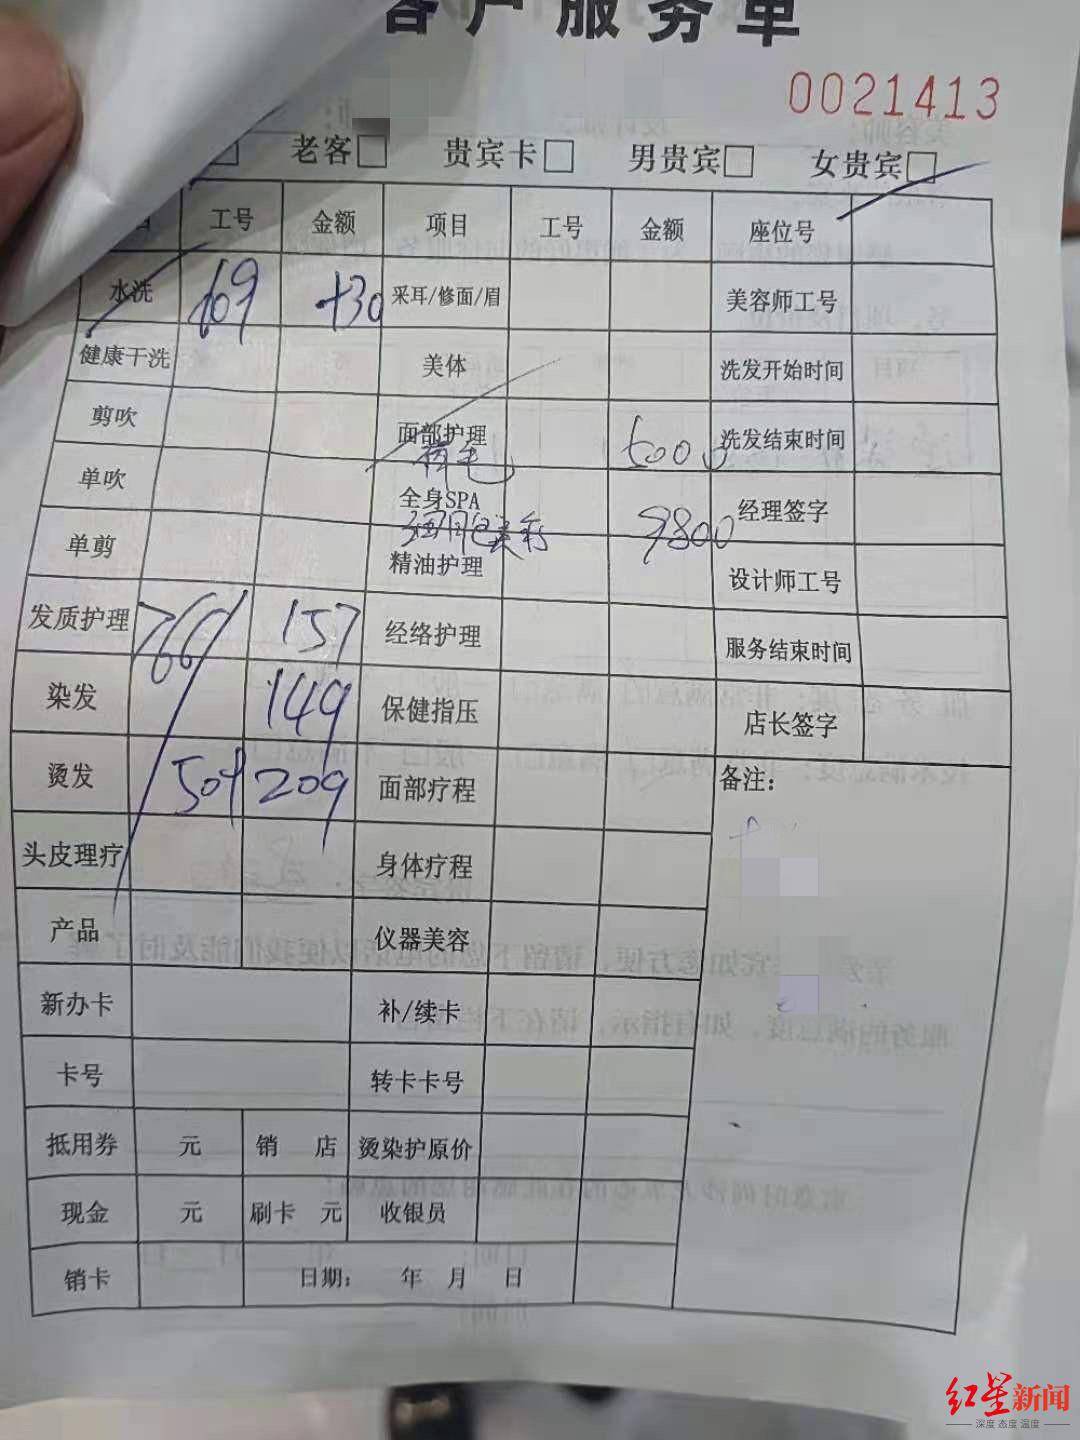 客户服务单
0021413
老客□ 贵宾卡□ 男贵宾□ 女贵宾□
工号 金额 项目 工号 金额 座位号
水洗 +30 采耳/修面/眉 美容师工号
健康干洗 美体 洗发开始时间
剪吹 面部护理 5000 洗发结束时间
单吹 全身SPA 经理签字
9800
单剪 精油护理 设计师工号
发质护理 766 157 经络护理 服务结束时间
染发 149 保健指压 店长签字
烫发 509 209 面部疗程 备注：
头皮理疗 身体疗程
产品 仪器美容
新办卡 补/续卡
卡号 转卡卡号
抵用券 元 销 店 烫染护原价
现金 元 刷卡 元 收银员
销卡 日期： 年 月 日
红星新闻
深度 态度 温度